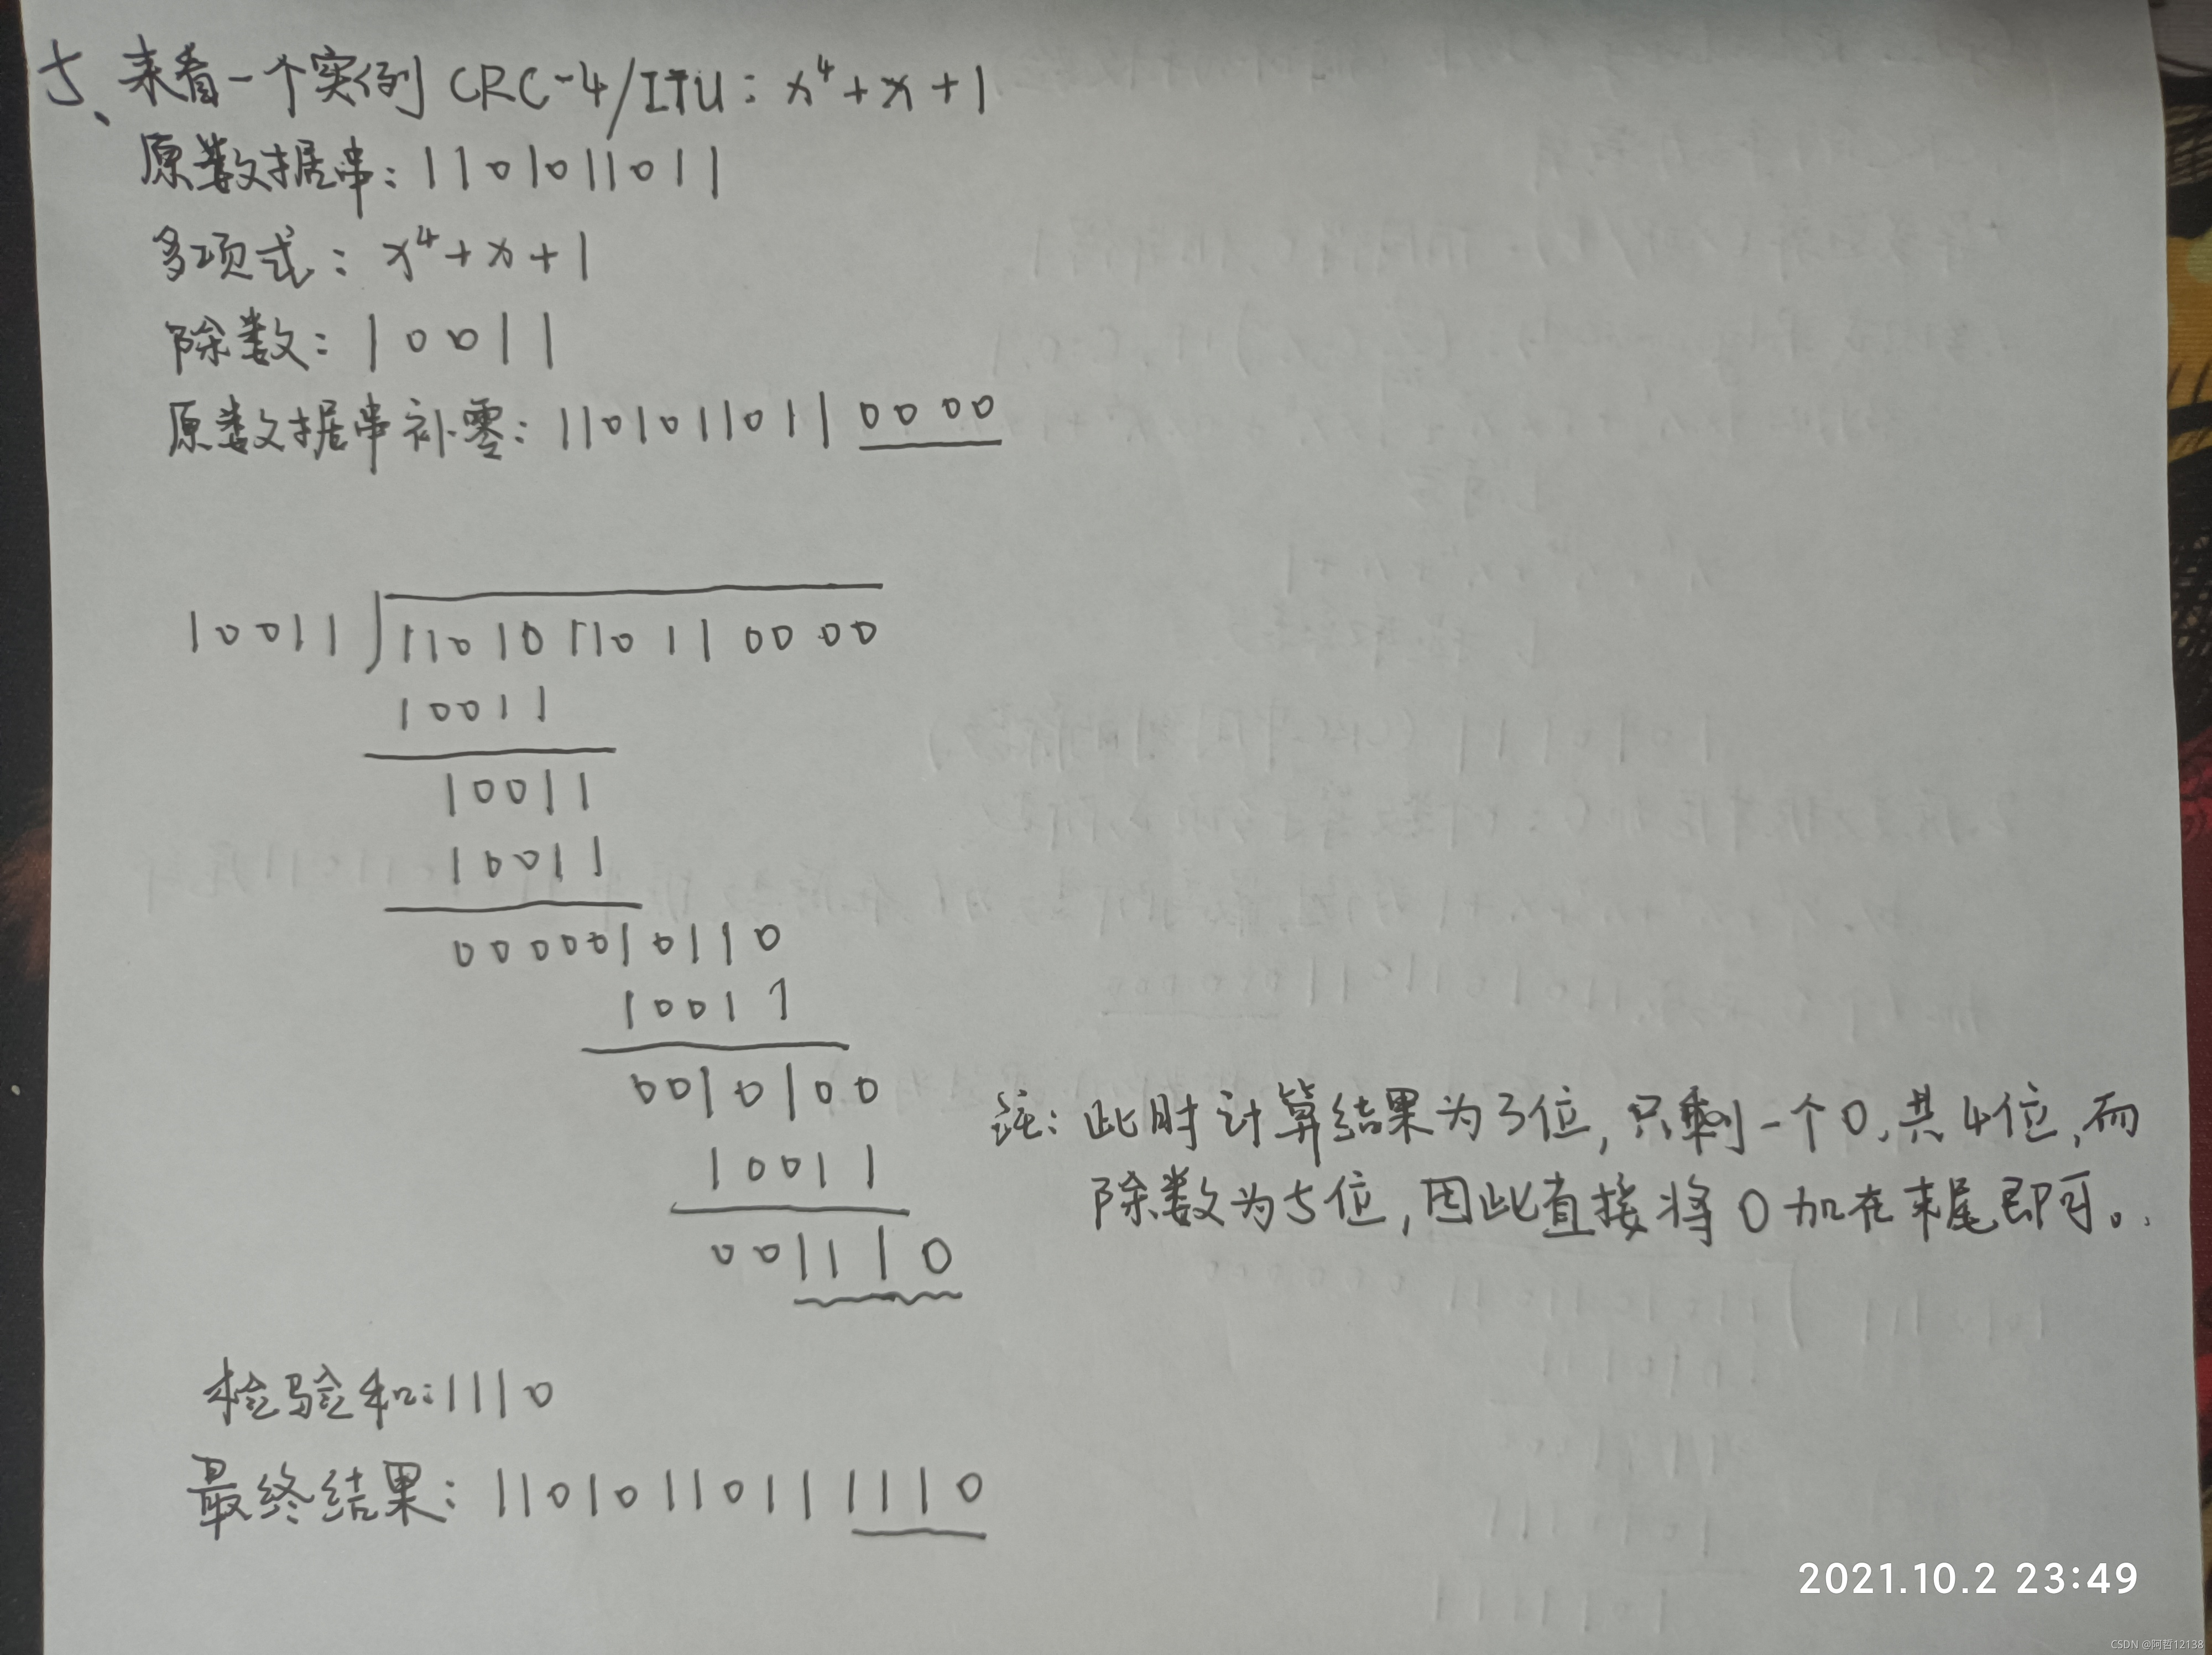 五、来看一个实例 CRC-4/ITU: x⁴+x+1
原数据串: 1101011011
多项式: x⁴+x+1
除数: 10011
原数据串补零: 11010110110000
10011 11010110110000
10011
10011
10011
0000010110
10011
0010100
注: 此时计算结果为3位,只剩一个0,共4位,而
10011
除数为5位,因此直接将0加在末尾即可。
001110
检验和: 1110
最终结果: 11010110111110
2021.10.2 23:49
CSDN @阿哲12138